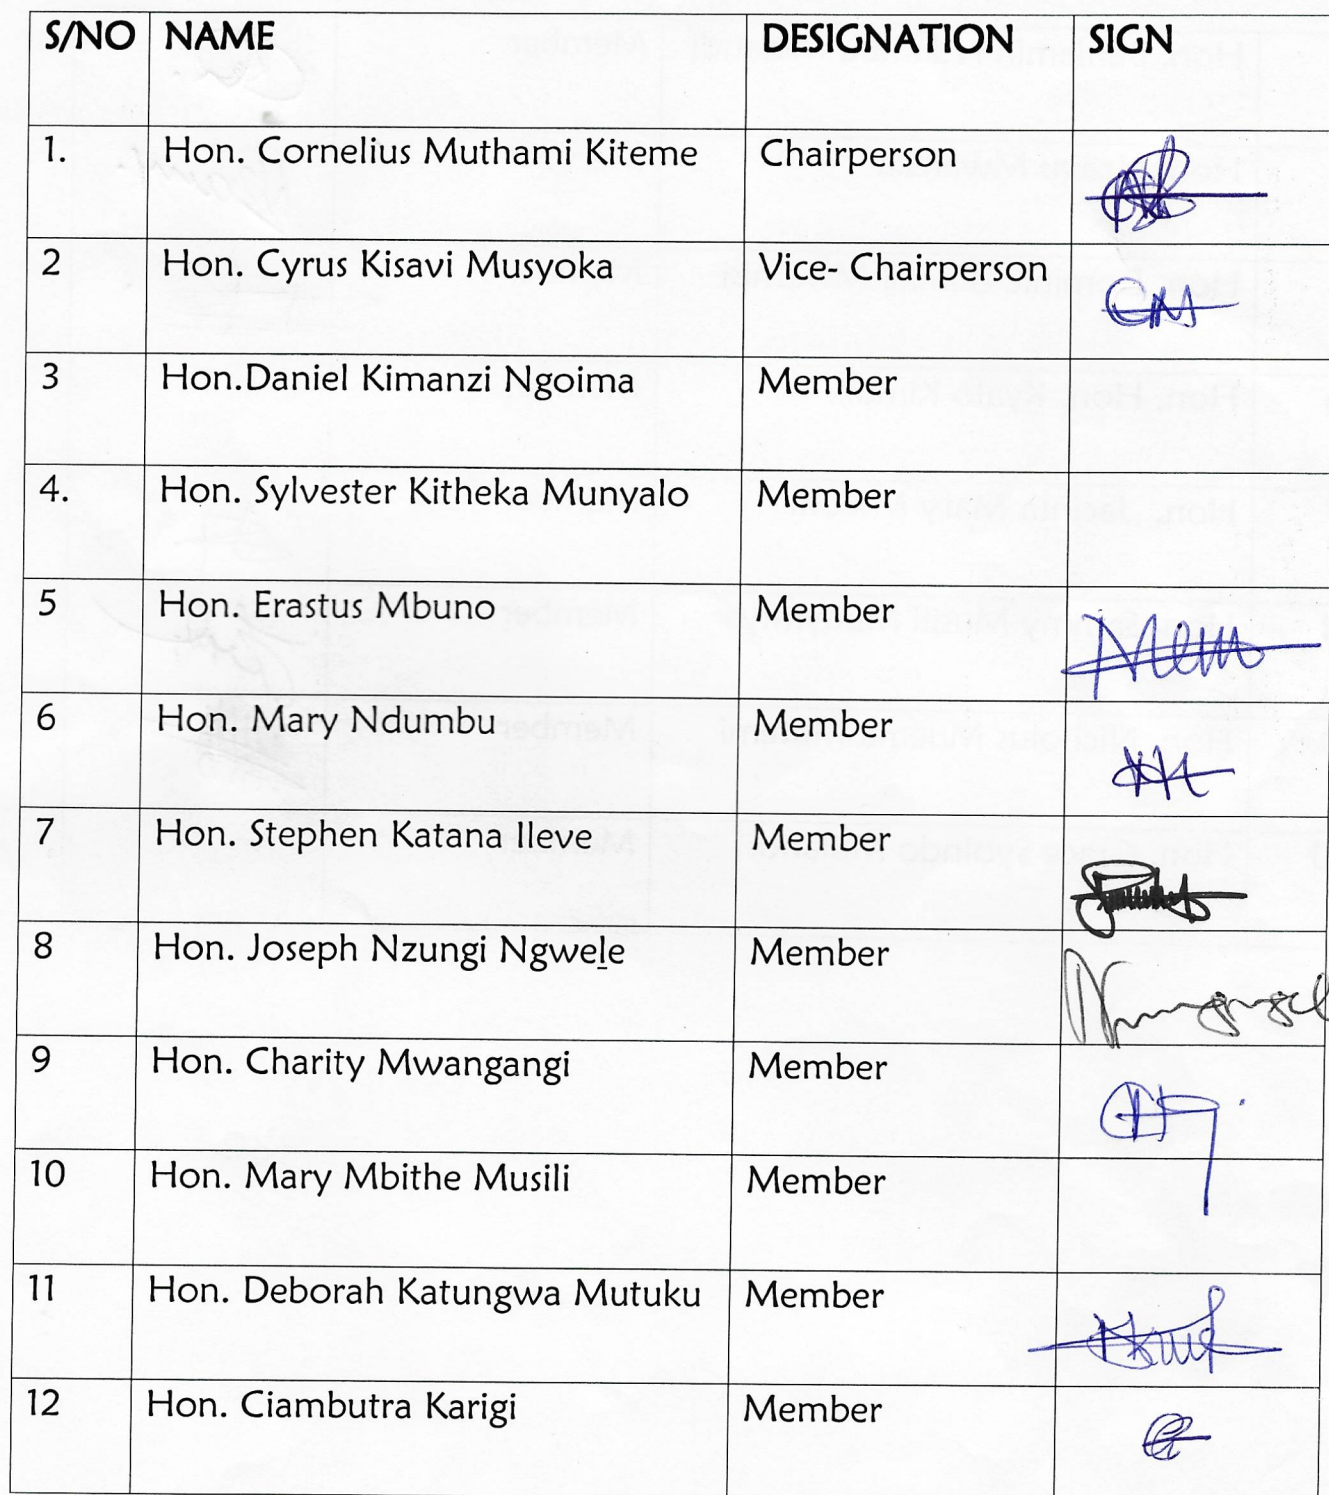 S/NO NAME DESIGNATION SIGN
1. Hon. Cornelius Muthami Kiteme Chairperson
2 Hon. Cyrus Kisavi Musyoka Vice- Chairperson
3 Hon.Daniel Kimanzi Ngoima Member
4. Hon. Sylvester Kitheka Munyalo Member
5 Hon. Erastus Mbuno Member
6 Hon. Mary Ndumbu Member
7 Hon. Stephen Katana Ileve Member
8 Hon. Joseph Nzungi Ngwele Member
9 Hon. Charity Mwangangi Member
10 Hon. Mary Mbithe Musili Member
11 Hon. Deborah Katungwa Mutuku Member
12 Hon. Ciambutra Karigi Member